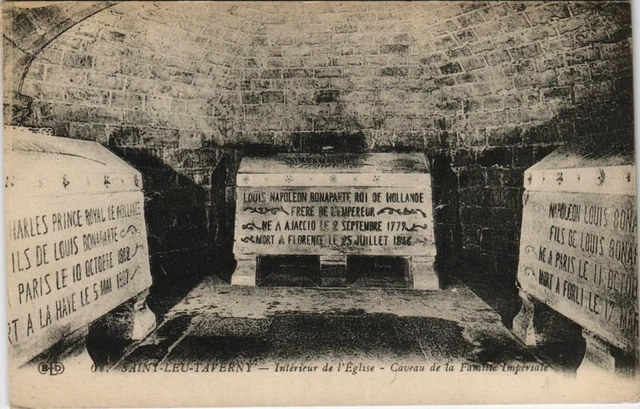 HARLES PRINCE ROYAL DE HOLLANDE
ILS DE LOUIS BONAPARTE
PARIS LE 10 OCTOBRE 1802
RT A LA HAYE LE 5 MAI
LOUIS NAPOLÉON BONAPARTE ROI DE HOLLANDE
FRÈRE DE L'EMPEREUR
NÉ A AJACCIO LE 2 SEPTEMBRE 1779
MORT A FLORENCE LE 25 JUILLET 1846
NAPOLÉON LOUIS BONA
FILS DE LOUIS BONA
NÉ A PARIS LE 11 OC
MORT A FORLI LE 17
BD
SAINT-LEU-TAVERNY — Intérieur de l'Église - Caveau de la Famille Impériale